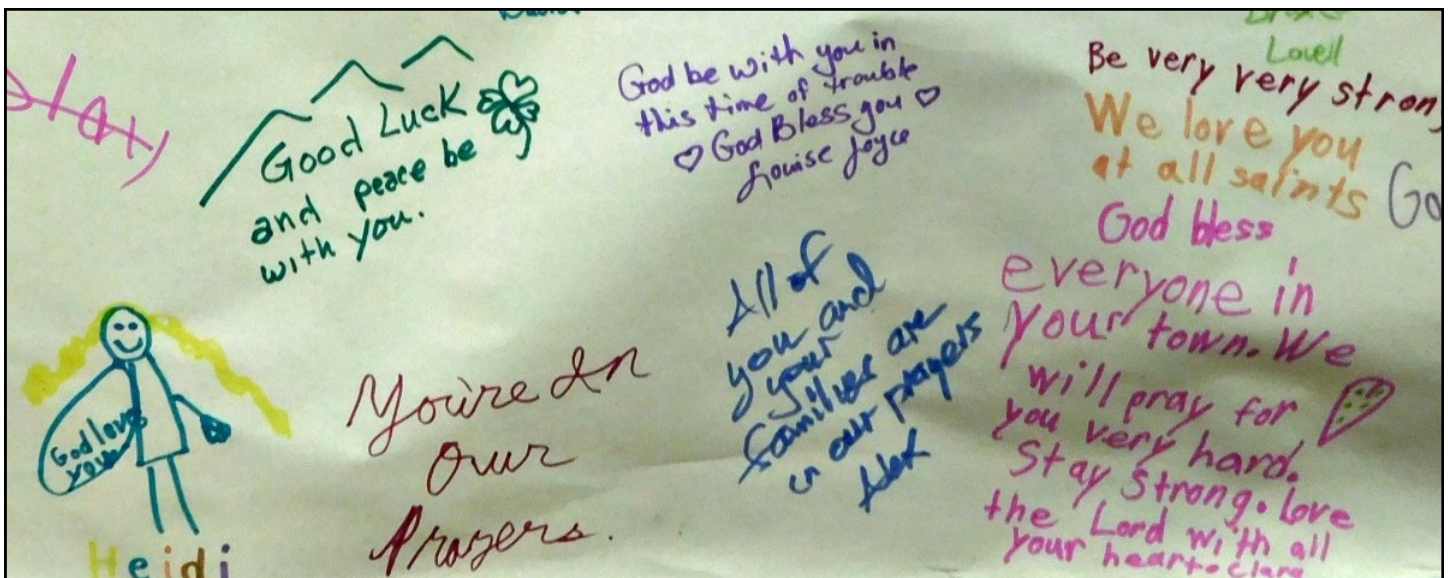 Good Luck
and peace be
with you.
God be with you in
this time of trouble
God Bless you
Louise Joyce
Lovell
Be very very stron
We love you
at all saints
Go
God bless
everyone in
your town. We
will pray for
you very hard.
Stay Strong. Love
the Lord with all
your heart-clara
All of
you and
your
families are
in our prayers
Alex
You're In
Our
Prayers.
God loves
you
Heidi